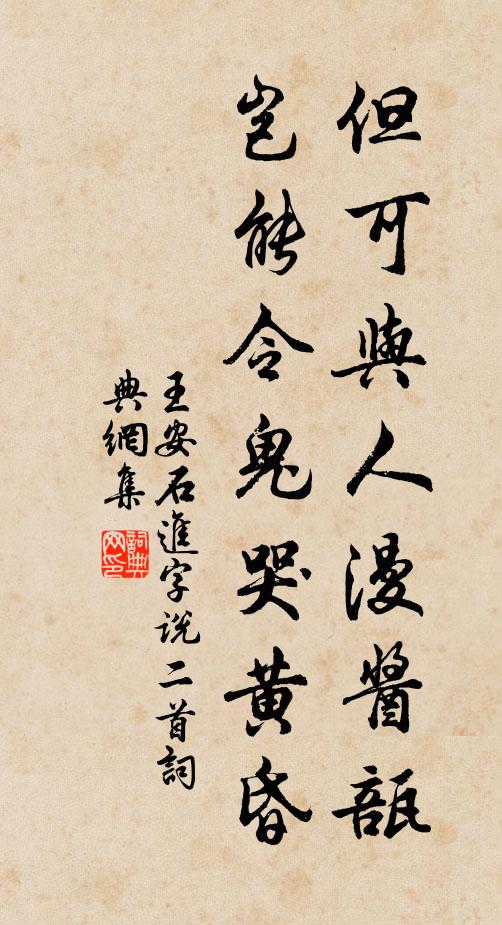 但可與人漫醬瓿
豈能令鬼哭黄昏
王安石進字説二首詞
典網集
詞典网印